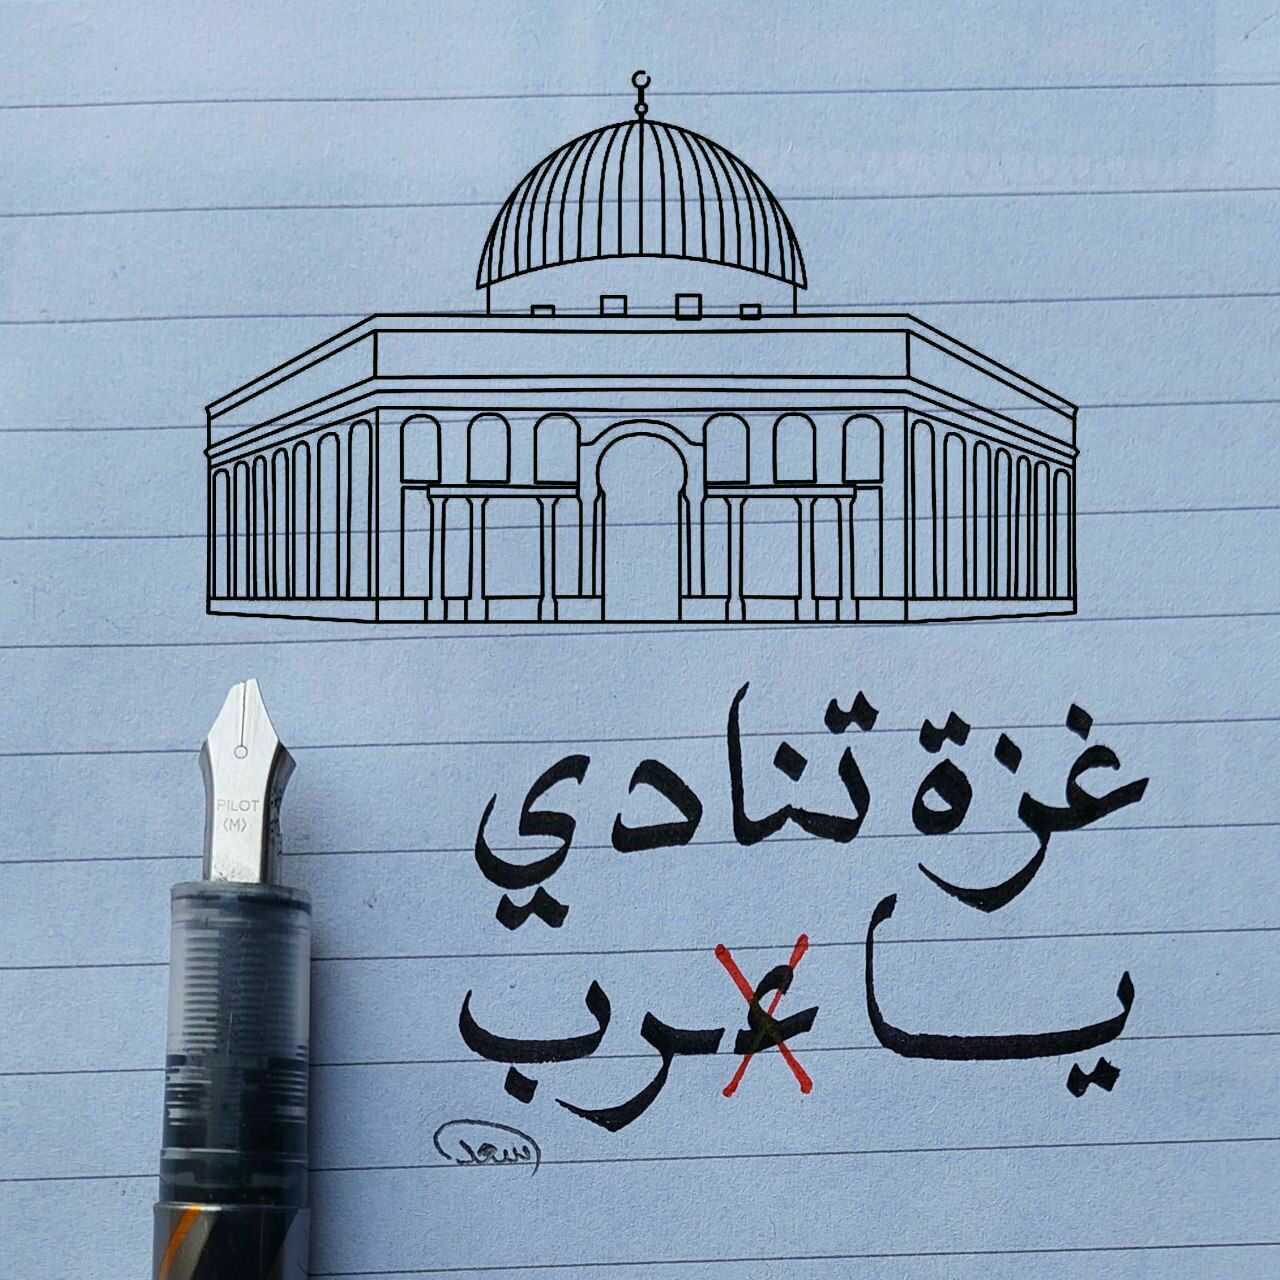 غزة تنادي
يا عرب
سعد
PILOT
<M>